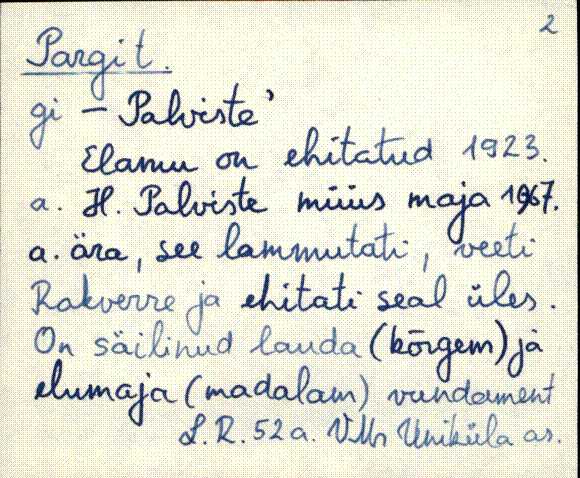 2
Pargi t.
gi – Palviste'
Elamu on ehitatud 1923.
a. H. Palviste müüs maja 1967.
a. ära, see lammutati, veeti
Rakverre ja ehitati seal üles.
On säilinud lauda (kõrgem) ja
elumaja (madalam) vundament
L.R. 52 a. VMr Uniküla as.